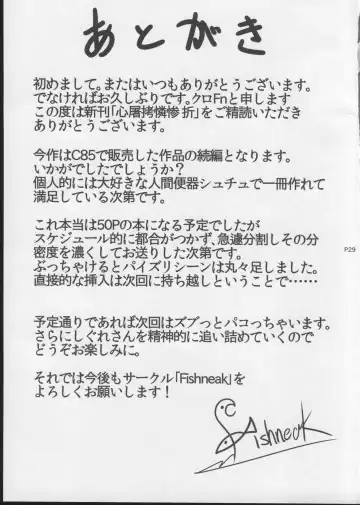 あとがき
初めまして。またはいつもありがとうございます。
でなければお久しぶりです。クロFnと申します
この度は新刊「心屠拷憐惨折」をご精読いただき
ありがとうございます。
今作はC85で販売した作品の続編となります。
いかがでしたでしょうか？
個人的には大好きな人間便器シュチュで一冊作れて
満足している次第です。
これ本当は50Pの本になる予定でしたが
スケジュール的に都合がつかず、急遽分割しその分
密度を濃くしてお送りした次第です。
ぶっちゃけるとパイズリシーンは丸々足しました。
直接的な挿入は次回に持ち越しということで……
P29
予定通りであれば次回はズブっとパコっちゃいます。
さらにしぐれさんを精神的に追い詰めていくので
どうぞお楽しみに。
それでは今後もサークル「Fishneak」を
よろしくお願いします！
Fishneak